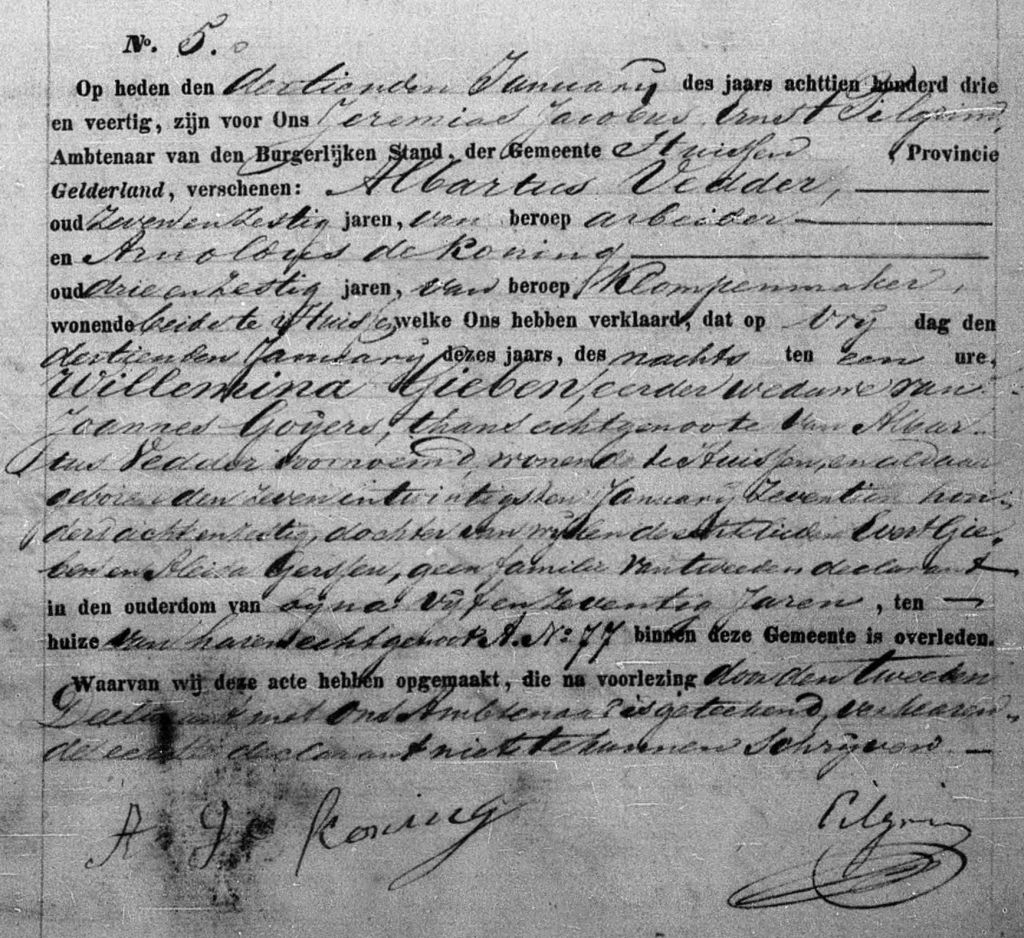 No. 5.
Op heden den dertienden January des jaars achttien honderd drie
en veertig, zijn voor Ons Jeremias Jacobus Ernst Pilgrim,
Ambtenaar van den Burgerlijken Stand, der Gemeente Huissen , Provincie
Gelderland, verschenen: Albartus Vedder,
oud zevenenzestig jaren, van beroep arbeider
en Arnoldus de Koning
oud drieenzestig jaren, van beroep Klompenmaker,
wonende beide te Huissen welke Ons hebben verklaard, dat op vrij dag den
dertienden January dezes jaars, des nachts ten een ure,
Willemina Gieben, eerder weduwe van
Joannes Goijers, thans echtgenoote van Albar-
tus Vedder voornoemd, wonende te Huissen, en aldaar
geboren den zevenentwintigsten January zeventien hon-
derd achtenzestig, dochter van wijlen de Echtelieden Evert Gie-
ben en Aleida Gerssen, geen familie van tweeden declarant
in den ouderdom van byna vijfenzeventig Jaren , ten
huize van haren echtgenoot A. No 77 binnen deze Gemeente is overleden.
Waarvan wij deze acte hebben opgemaakt, die na voorlezing door den tweeden
Declarant met Ons Ambtenaar is geteekend, verklaren-
de eerste declarant niet te kunnen schrijven.
A D Koning Pilgrim